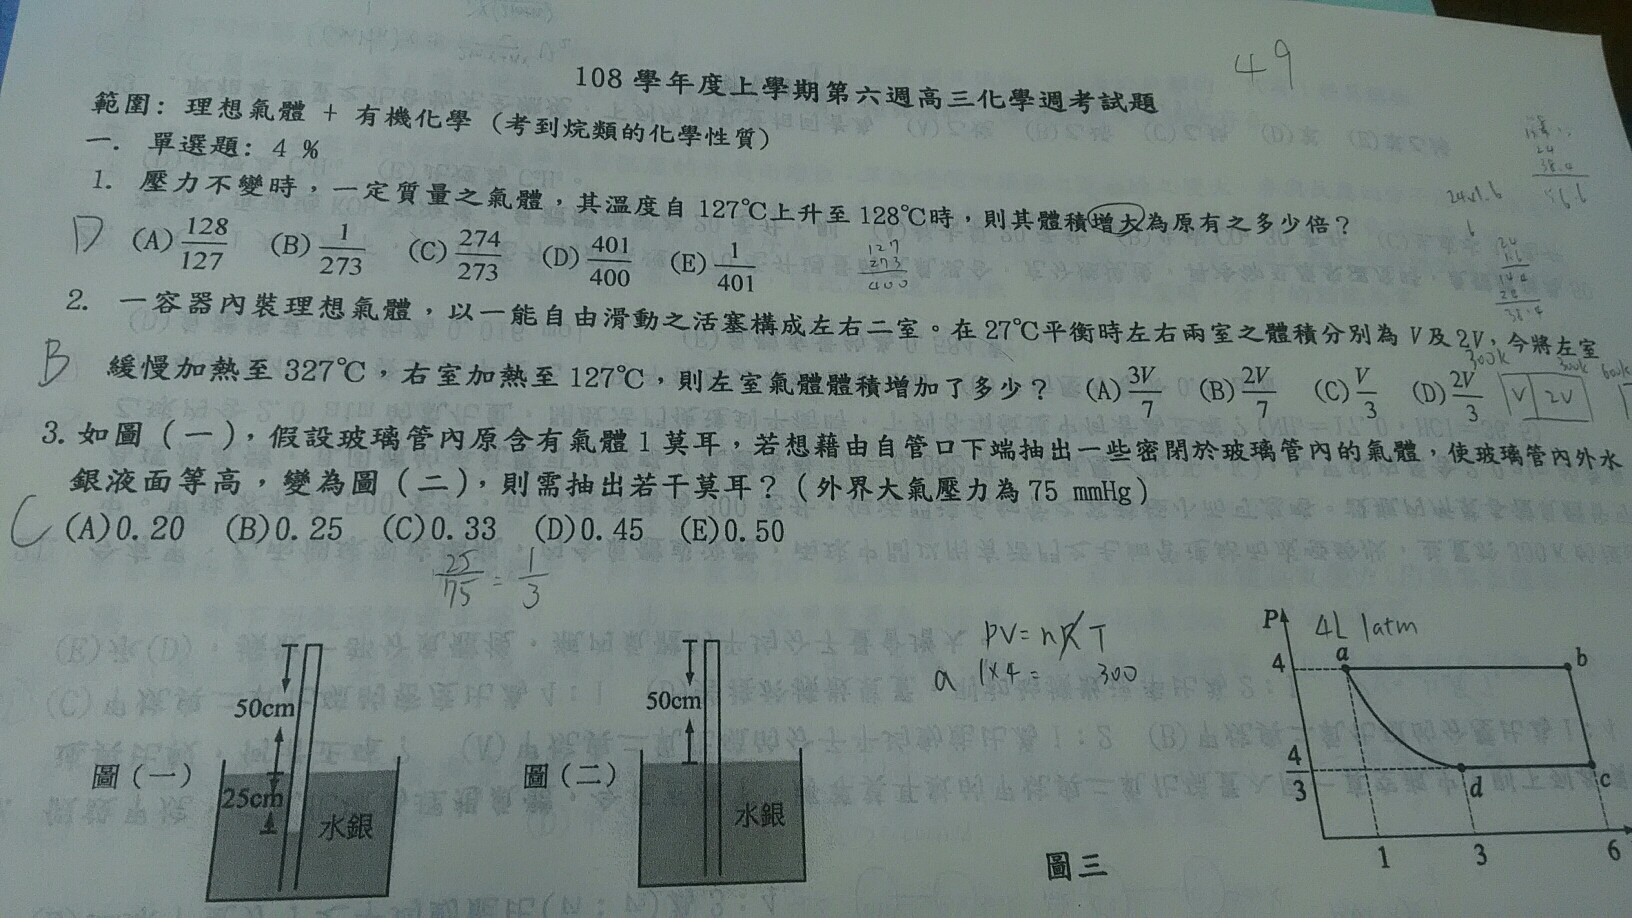 49
108 學年度上學期第六週高三化學週考試題
範圍: 理想氣體 + 有機化學 (考到烷類的化學性質)
一. 單選題: 4 %
1. 壓力不變時，一定質量之氣體，其溫度自 127℃上升至 128℃時，則其體積增大為原有之多少倍？
D (A) 128/127 (B) 1/273 (C) 274/273 (D) 401/400 (E) 1/401
127
273
400
2. 一容器內裝理想氣體，以一能自由滑動之活塞構成左右二室。在 27℃平衡時左右兩室之體積分別為 V 及 2V，今將左室
B 緩慢加熱至 327℃，右室加熱至 127℃，則左室氣體體積增加了多少？ (A) 3V/7 (B) 2V/7 (C) V/3 (D) 2V/3
300k 300k 600k
V 2V
3. 如圖 (一)，假設玻璃管內原含有氣體 1 莫耳，若想藉由自管口下端抽出一些密閉於玻璃管內的氣體，使玻璃管內外水
銀液面等高，變為圖 (二)，則需抽出若干莫耳？ (外界大氣壓力為 75 mmHg)
C (A)0.20 (B)0.25 (C)0.33 (D)0.45 (E)0.50
25/75 = 1/3
50cm
25cm
水銀
圖 (一)
50cm
水銀
圖 (二)
PV=nRT
a 1x4= 300
P 4L 1atm
4 a b
4/3 d c
1 3 6
圖三